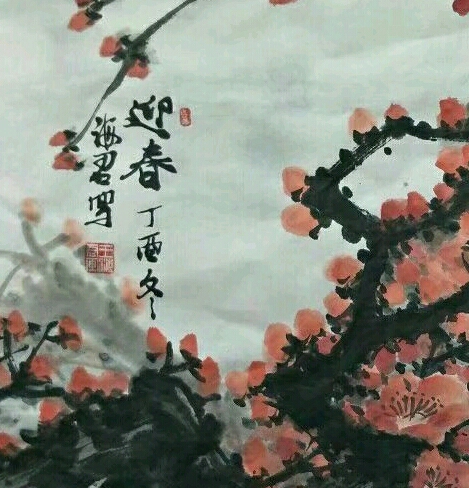 迎春
丁酉冬
海君写